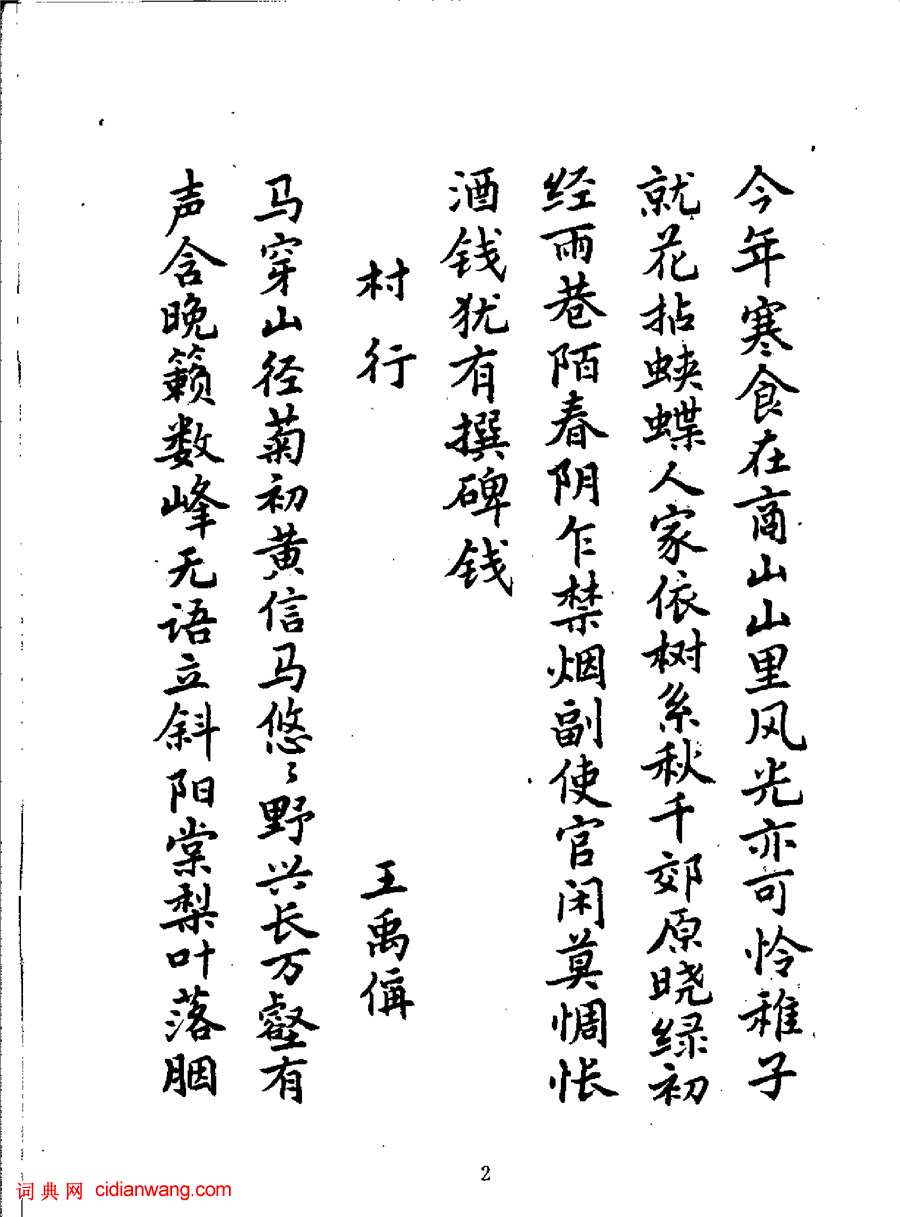 今年寒食在商山山里风光亦可怜稚子
就花拈蛱蝶人家依树系秋千郊原晓绿初
经雨巷陌春阴乍禁烟副使官闲莫惆怅
酒钱犹有撰碑钱
村行 王禹偁
马穿山径菊初黄信马悠〻野兴长万壑有
声含晚籁数峰无语立斜阳棠梨叶落胭
2
词典网 cidianwang.com